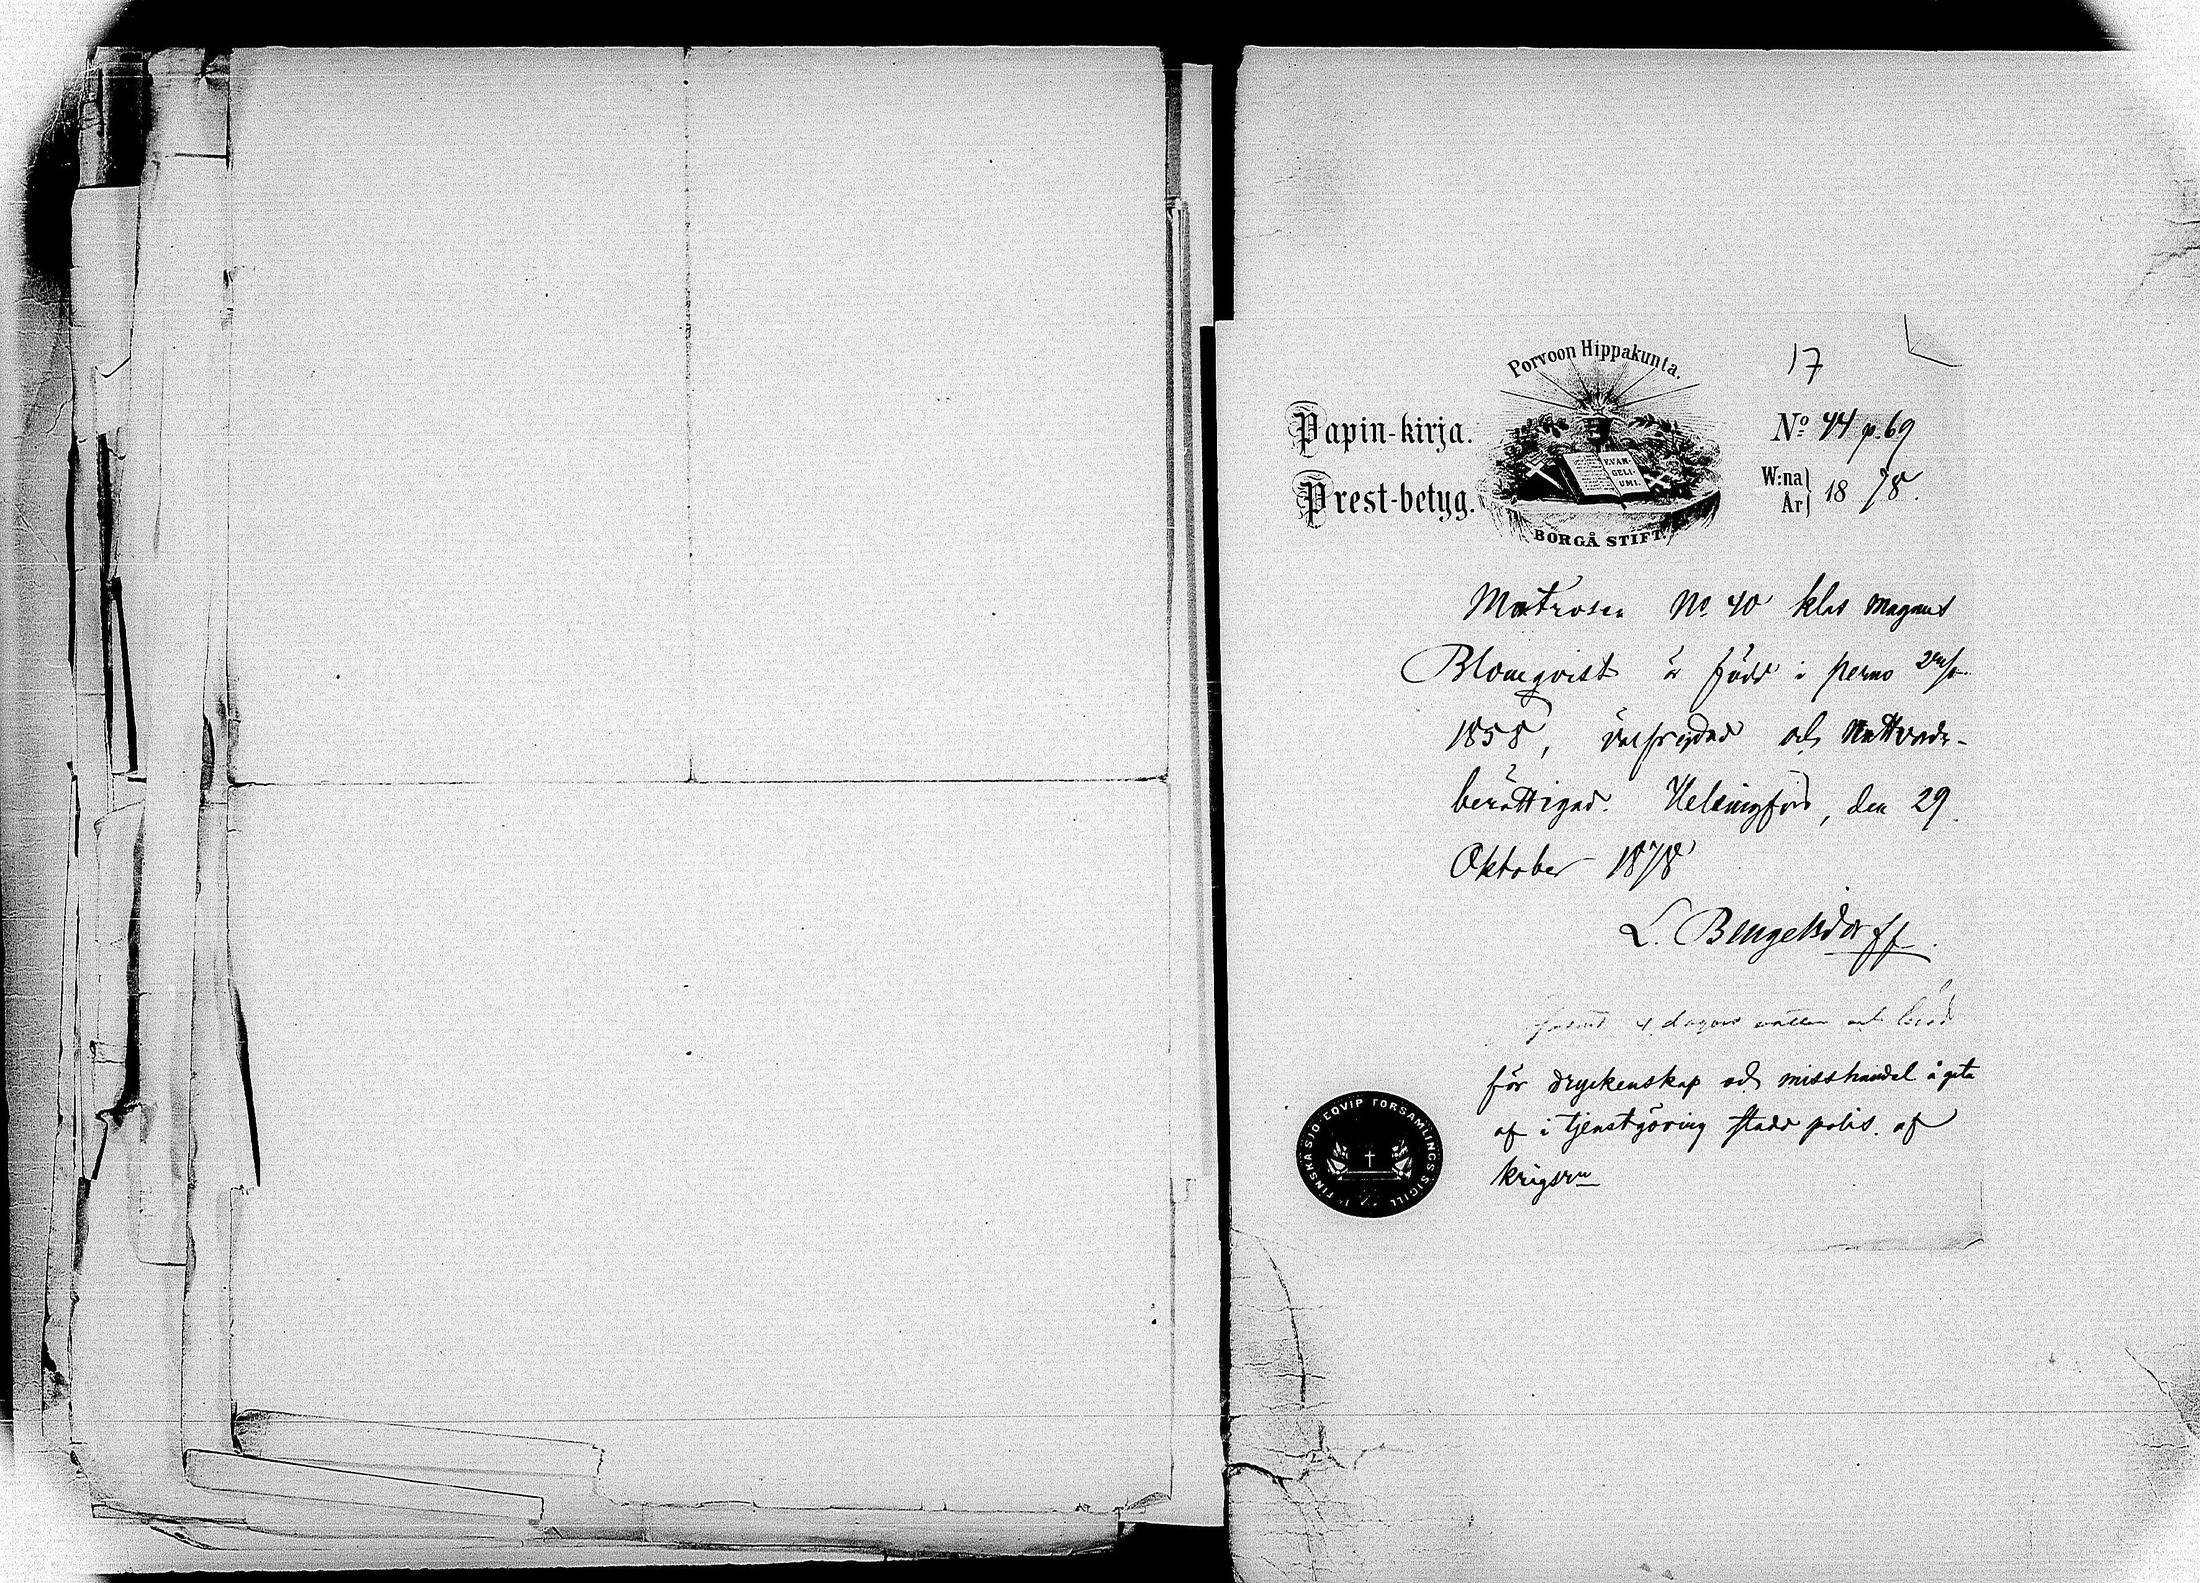 17
Porvoon Hippakunta.
Papin-kirja.
Nº 44 p. 69
EVAN-
GELI-
UMI
Prest-betyg.
W:na
År } 18 78.
BORGÅ STIFT.
Matrosen Nº 40 Klas Magnus
Blomqvist är född i Perno
1858, och Nattvards-
berättigad. Helsingfors, den 29
Oktober 1878
L. Bengelsdorff
4 dagars vatten och bröd
för dryckenskap och misshandel å gata
af i tjenstgöring stadd polis. af
krigsrn
FINSKA SJÖ-EQVIP FÖRSAMLINGS SIGILL